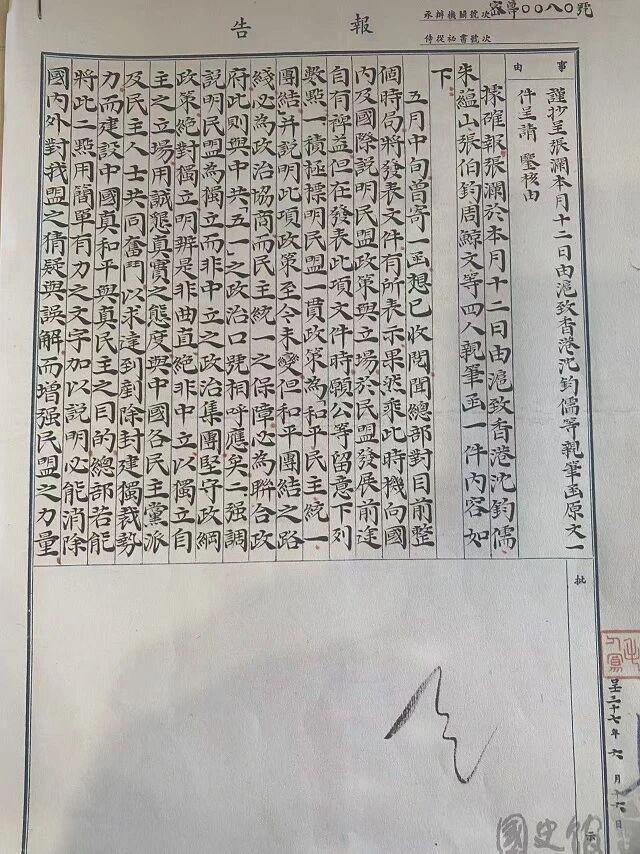 報告
密導〇〇八〇號
承辦機關號次
侍從祕書號次
事由
謹抄呈張瀾本月十二日由滬致香港沈鈞儒等親筆函原文一
件呈請 鑒核由
據確報張瀾於本月十二日由滬致香港沈鈞儒
朱蘊山張伯鈞周鯨文等四人親筆函一件內容如
下
五月中旬曾寄一函想已收閱聞總部對目前整
個時局將發表文件有所表示果然乘此時機向國
內及國際說明民盟政策與立場於民盟發展前途
自有裨益但在發表此項文件時願公等留意下列
數點一積極標明民盟一貫政策為和平民主統一
團結并說明此項政策至今未變但和平團結之路
綫必為政治協商而民主統一之保障必為聯合政
府此則與中共「五一」之政治口號相呼應矣二强調
說明民盟為獨立而非中立之政治集團堅守政綱
政策絕對獨立明辨是非曲直絕非中立以獨立自
主之立場用誠態真實之態度與中國各民主黨派
及民主人士共同奮鬥以求達到剷除封建獨裁勢
力而建設中國真和平與真民主之目的總部若能
將此二點用簡單有力之文字加以說明必能消除
國內外對我盟之猜疑與誤解而增强民盟之力量
批
示
呈三十七年六月十六日
國史館